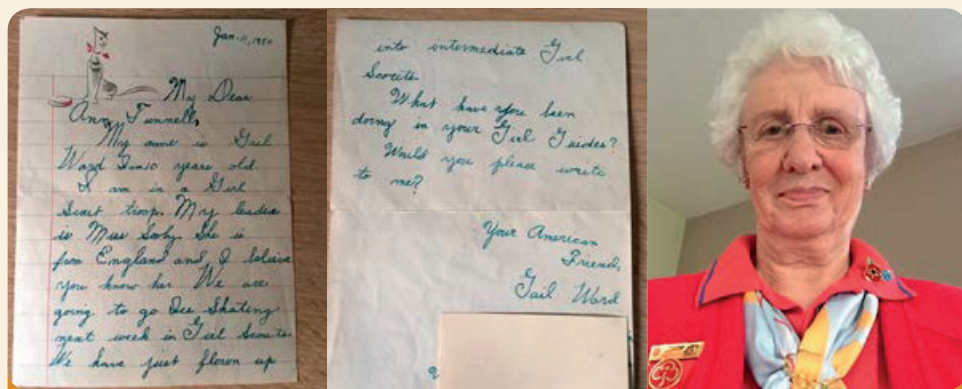 Jan. 11, 1950
My Dear
Ann Tunnell,
My name is Gail
Ward I'm 10 years old.
I am in a Girl
Scout troop. My leader
is Miss She is
from England and, I believe
you know her. We are
going to go Ice Skating
next week in Girl Scouts.
We have just flown up
into intermediate Girl
Scouts.
What have you been
doing in your Girl Guides?
Would you please write
to me?
Your American
Friend,
Gail Ward